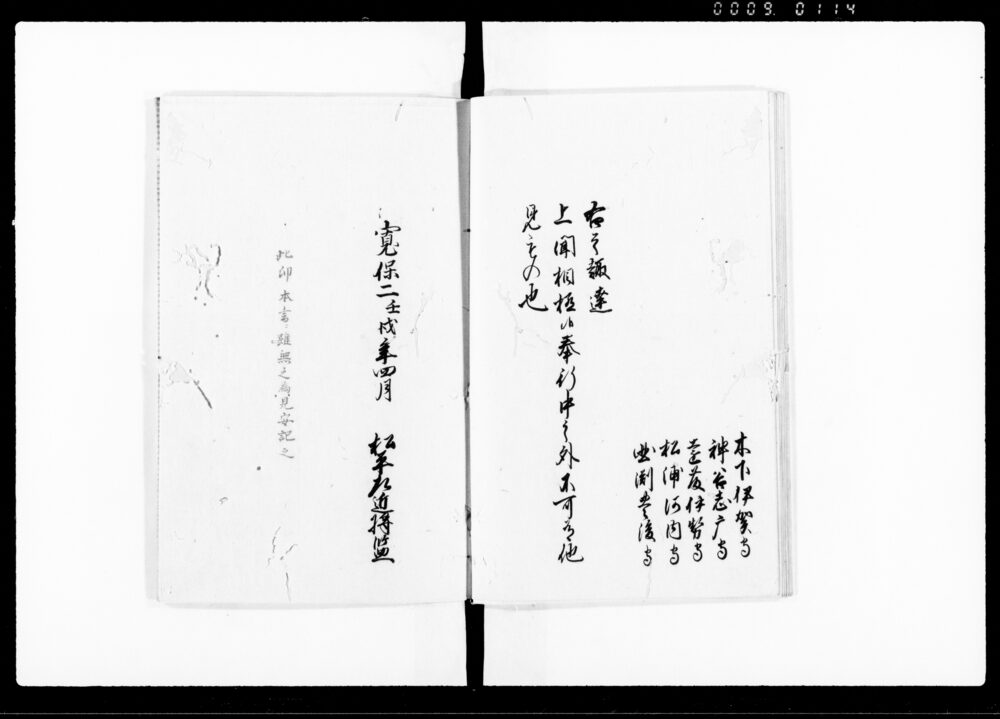 0009. 0114
木下伊賀守
神谷志摩守
遠藤伊勢守
松浦河内守
曲渕豊後守
右之趣達
上聞相極候奉行中之外不可有他
見もの也
寛保二壬戌年四月
松平左近将監
此印本書雖無之為見安記之